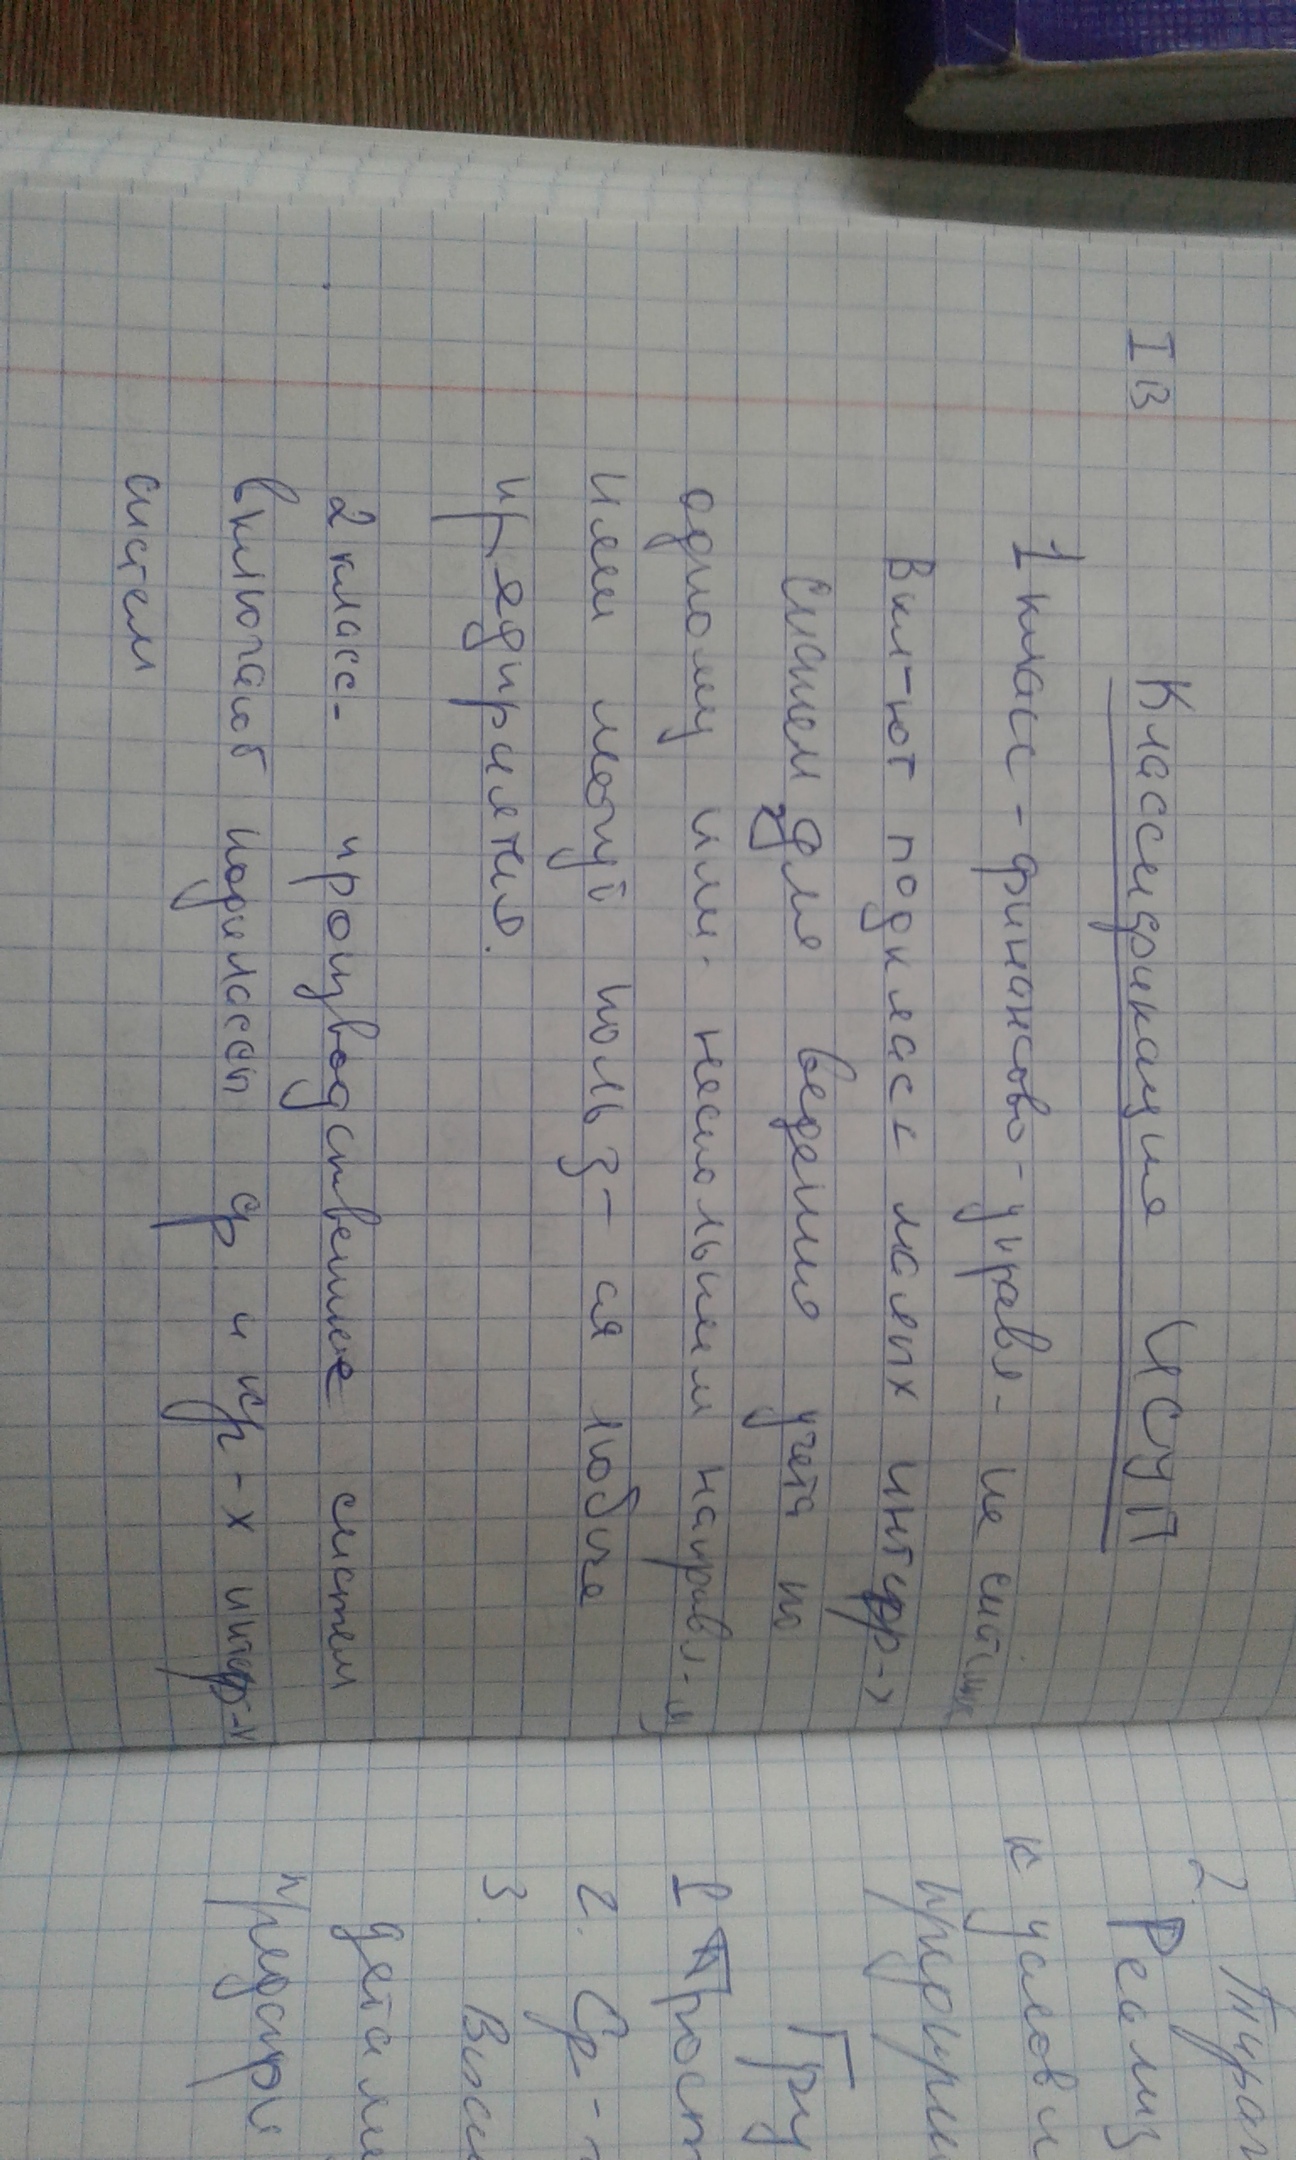 IВ Классификация ИСУП
1 класс - финансово-управл- ие системы
Вкл-ют подкласс малых интегр-х
систем для ведения учета по
одному или нескольким направл-м
ими могут польз-ся любые
предприятия.
2 класс - производственные систем
включают подклассы ср и кр-х интегр-х
систем
2. Тираж
Реализ
к услови
предпри
Гру
1 Прост
2. Ср-
3. Высш
детали
предпри